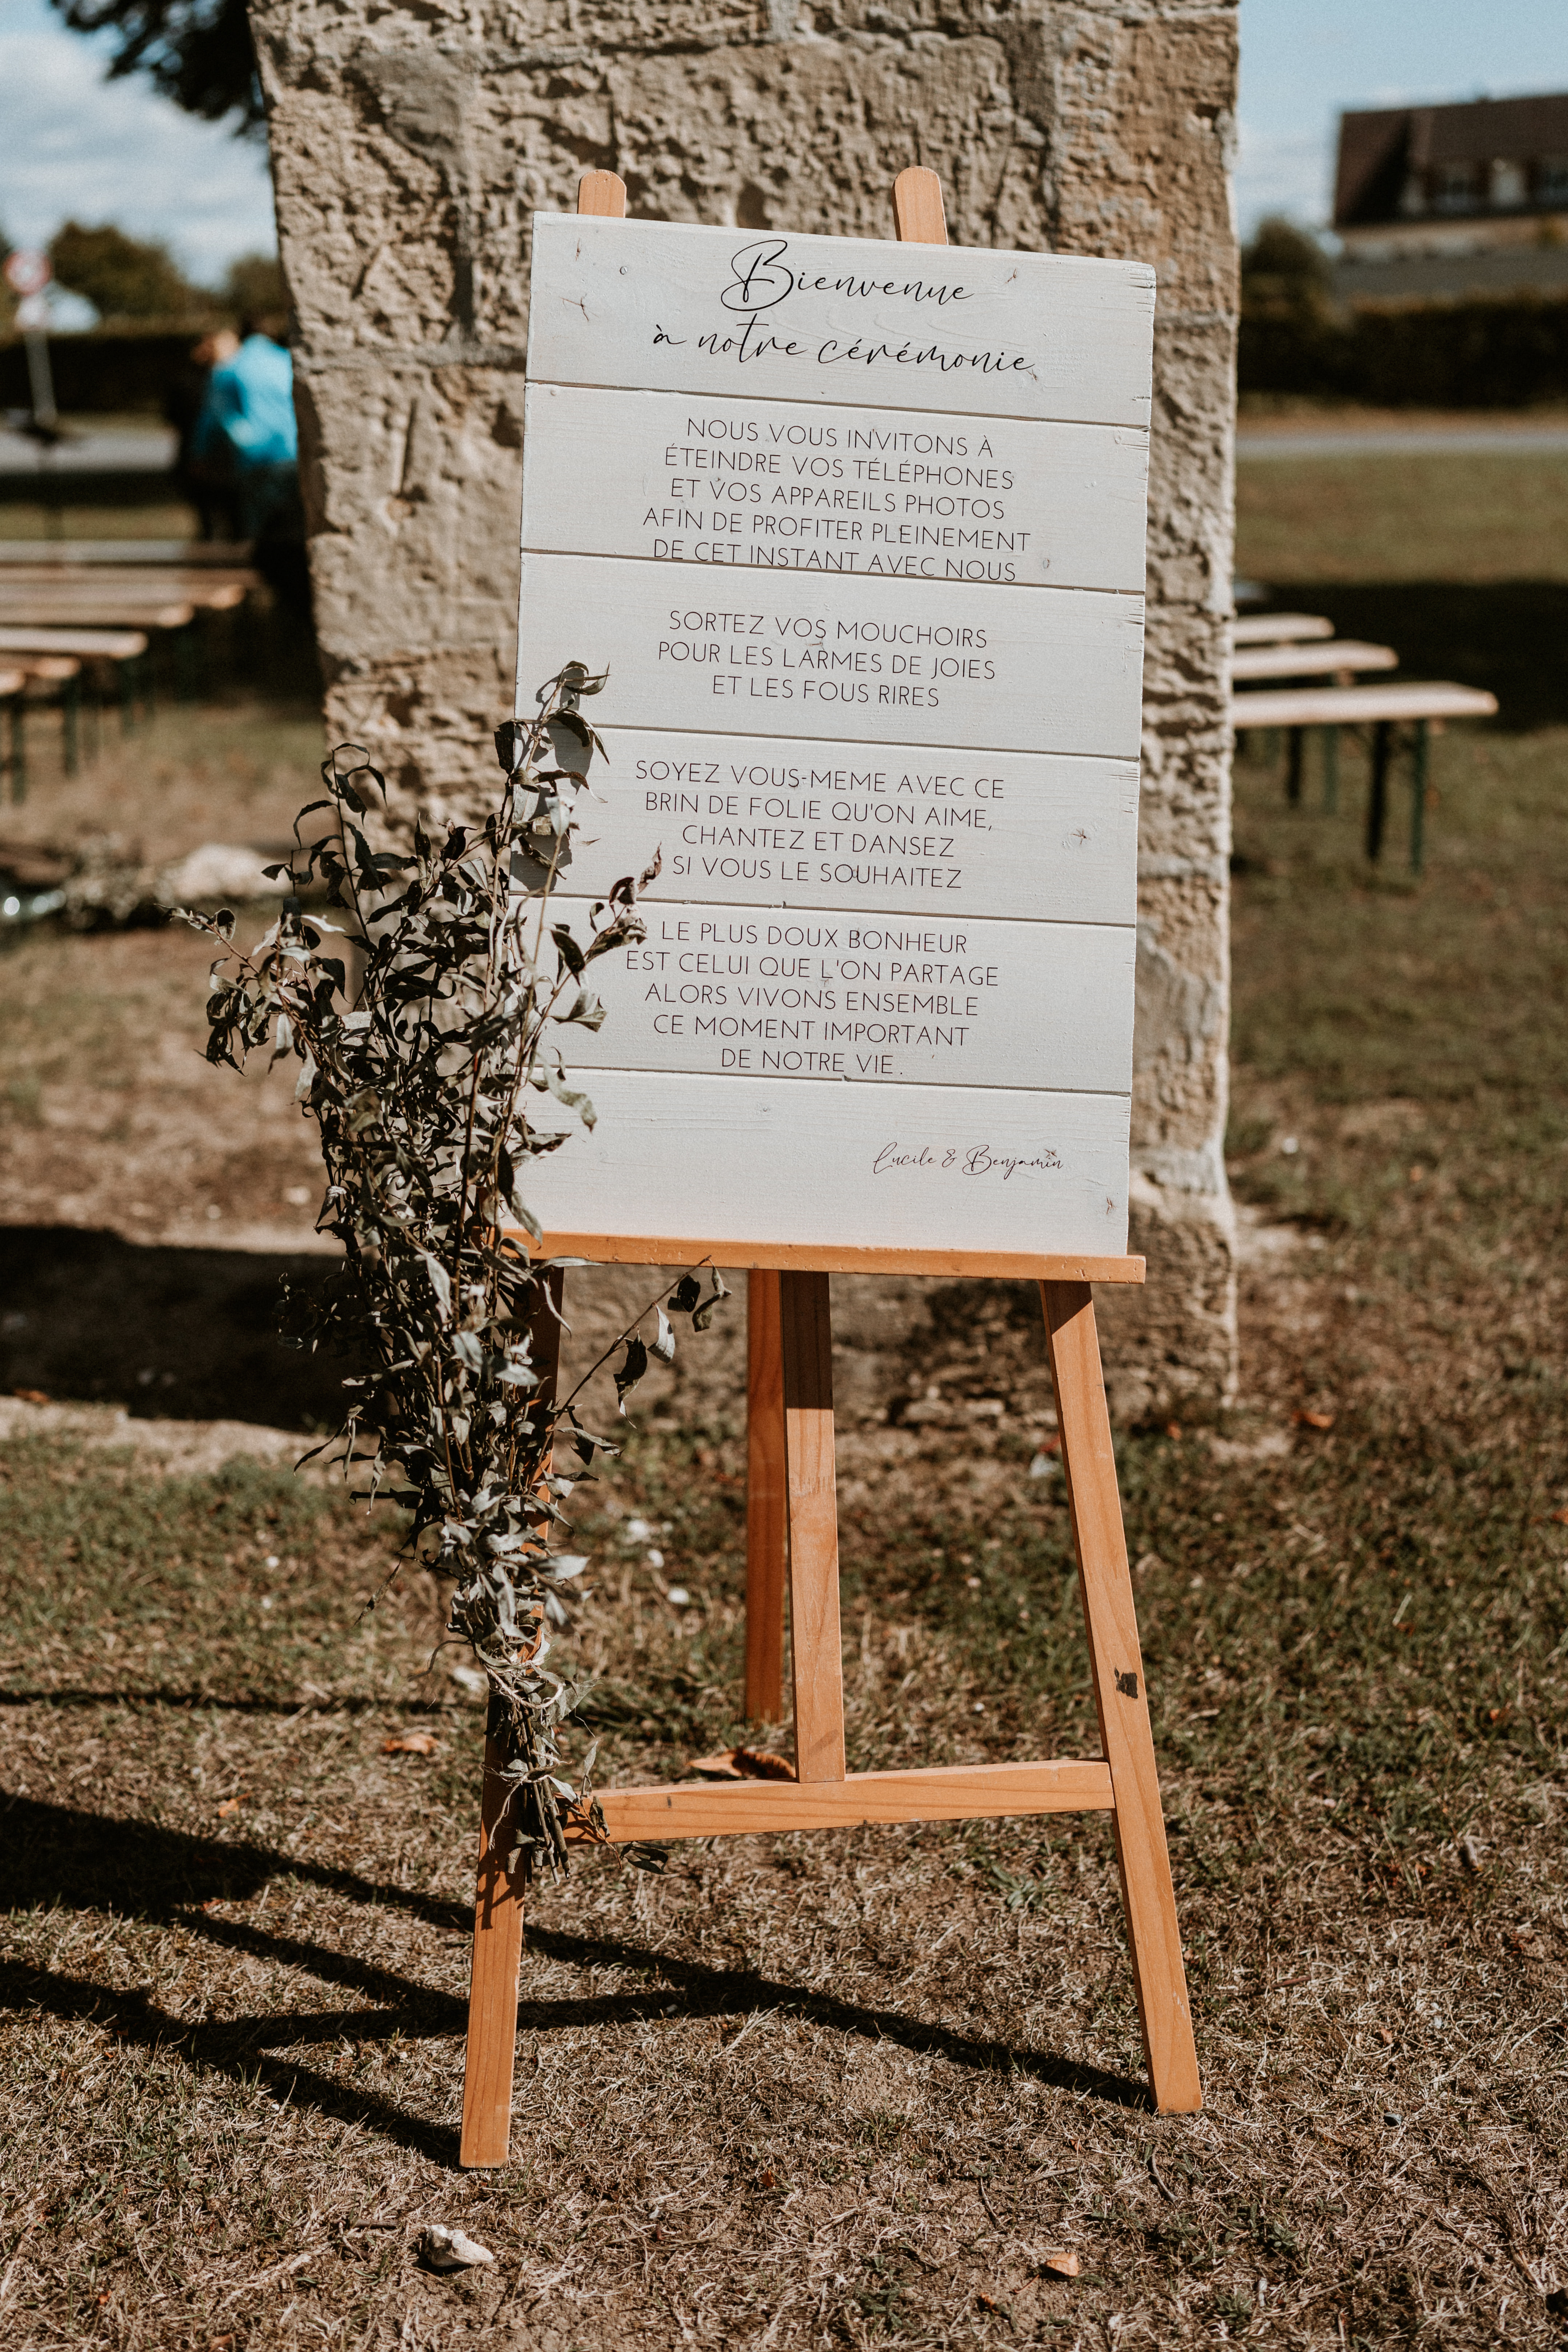 Bienvenue
à notre cérémonie
NOUS VOUS INVITONS À
ÉTEINDRE VOS TÉLÉPHONES
ET VOS APPAREILS PHOTOS
AFIN DE PROFITER PLEINEMENT
DE CET INSTANT AVEC NOUS
SORTEZ VOS MOUCHOIRS
POUR LES LARMES DE JOIES
ET LES FOUS RIRES
SOYEZ VOUS-MEME AVEC CE
BRIN DE FOLIE QU'ON AIME,
CHANTEZ ET DANSEZ
SI VOUS LE SOUHAITEZ
LE PLUS DOUX BONHEUR
EST CELUI QUE L'ON PARTAGE
ALORS VIVONS ENSEMBLE
CE MOMENT IMPORTANT
DE NOTRE VIE.
Lucile & Benjamin